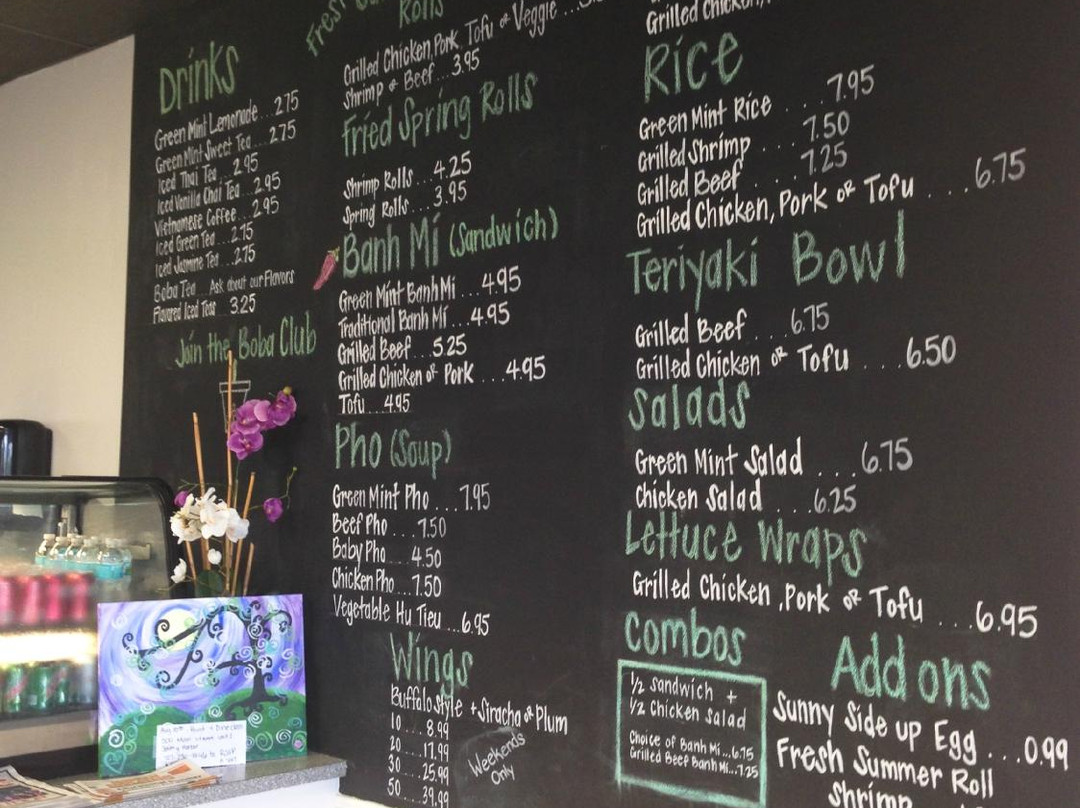 Drinks
Green Mint Lemonade...2.75
Green Mint Sweet Tea...2.75
Iced Thai Tea...2.95
Iced Vanilla Chai Tea...2.95
Vietnamese Coffee...2.95
Iced Green Tea...2.75
Iced Jasmine Tea...2.75
Boba Tea...Ask about our Flavors
Flavored Iced Teas 3.25
Join the Boba Club
Fresh
Rolls
Grilled Chicken, Pork, Tofu or Veggie
Shrimp or Beef...3.95
Fried Spring Rolls
Shrimp Rolls...4.25
Spring Rolls...3.95
Banh Mi (Sandwich)
Green Mint Banh Mi...4.95
Traditional Banh Mi...4.95
Grilled Beef...5.25
Grilled Chicken or Pork...4.95
Tofu...4.95
Pho (Soup)
Green Mint Pho...7.95
Beef Pho...7.50
Baby Pho...4.50
Chicken Pho...7.50
Vegetable Hu Tieu...6.95
Wings
Buffalo Style + Siracha or Plum
10....8.99
20....17.99
30....25.99
50....39.99
Weekends
Only
Grilled Chicken,
Rice
Green Mint Rice....7.95
Grilled Shrimp....7.50
Grilled Beef....7.25
Grilled Chicken, Pork or Tofu....6.75
Teriyaki Bowl
Grilled Beef....6.75
Grilled Chicken or Tofu....6.50
Salads
Green Mint Salad...6.75
Chicken Salad...6.25
Lettuce Wraps
Grilled Chicken, Pork or Tofu...6.95
Combos
1/2 Sandwich +
1/2 Chicken Salad
Choice of Banh Mi...6.75
Grilled Beef Banh Mi...7.25
Add ons
Sunny Side up Egg...0.99
Fresh Summer Roll
Shrimp